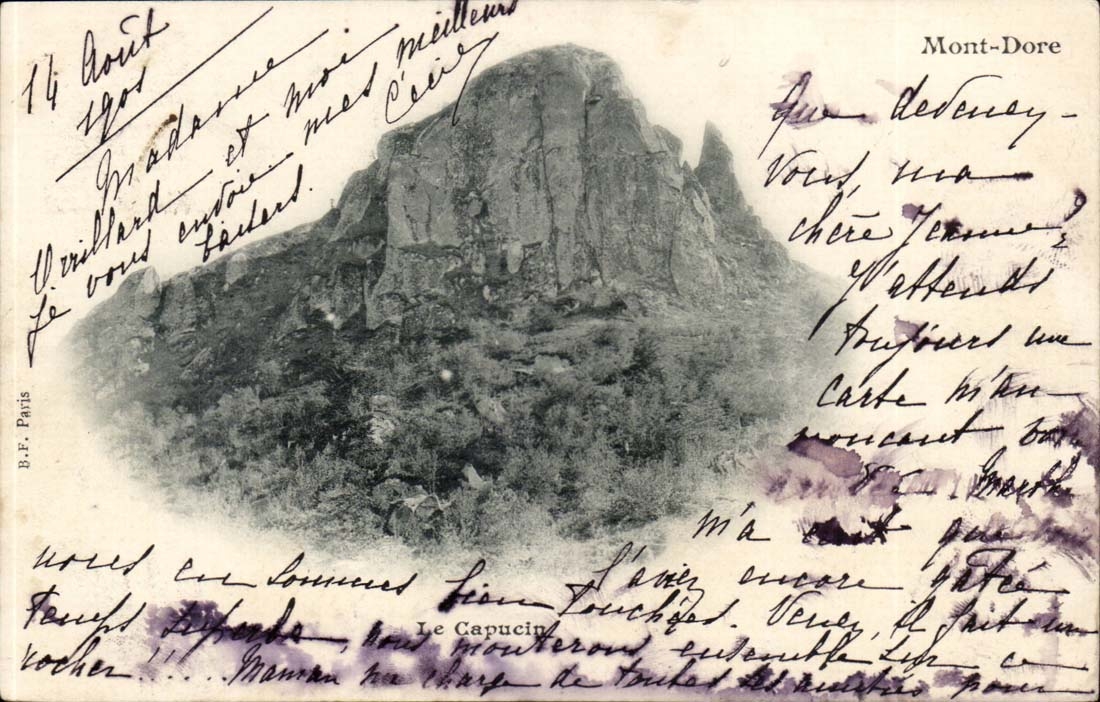 Mont-Dore
14 Août
1901
Que devenez-
vous, ma
chère Jeanne?
J'attends
toujours une
carte m'an
noncant
Marthe
m'a que
l'aviez encore gatée
nous en sommes bien touchées. Venez, il fait un
temps superbe, nous monterons ensemble sur ce
rocher!!.... Maman me charge de toutes ses amitiés pour
Madame
Orillard et moi
je vous envoie mes meilleurs
baisers. Cécile
Le Capucin
B.F. Paris